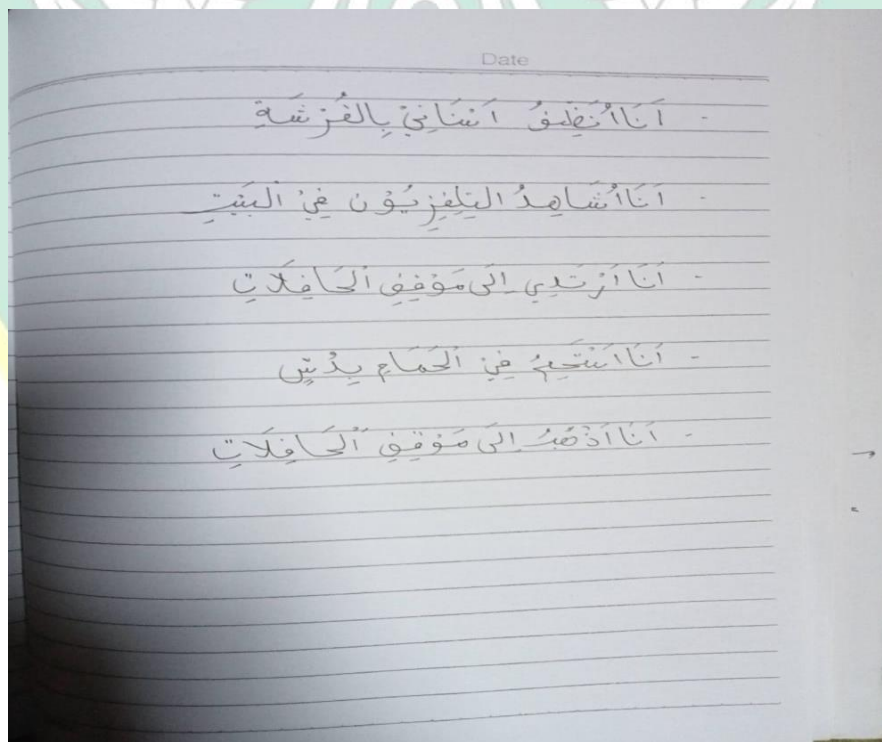 Date
- اَنَا اُنَظِّفُ اَسْنَانِيْ بِالفُرْشَةِ
- اَنَا اُشَاهِدُ التِلِفِزِيُوْن فِيْ الْبَيْتِ
- اَنَا اَرْتَدِي اِلَى مَوْقِفِ الْحَافِلَاتِ
- اَنَا اَسْتَحِمُّ فِيْ الْحَمَامِ بِدُشٍ
- اَنَا اَذْهَبُ اِلَى مَوْقِفِ الْحَافِلَاتِ